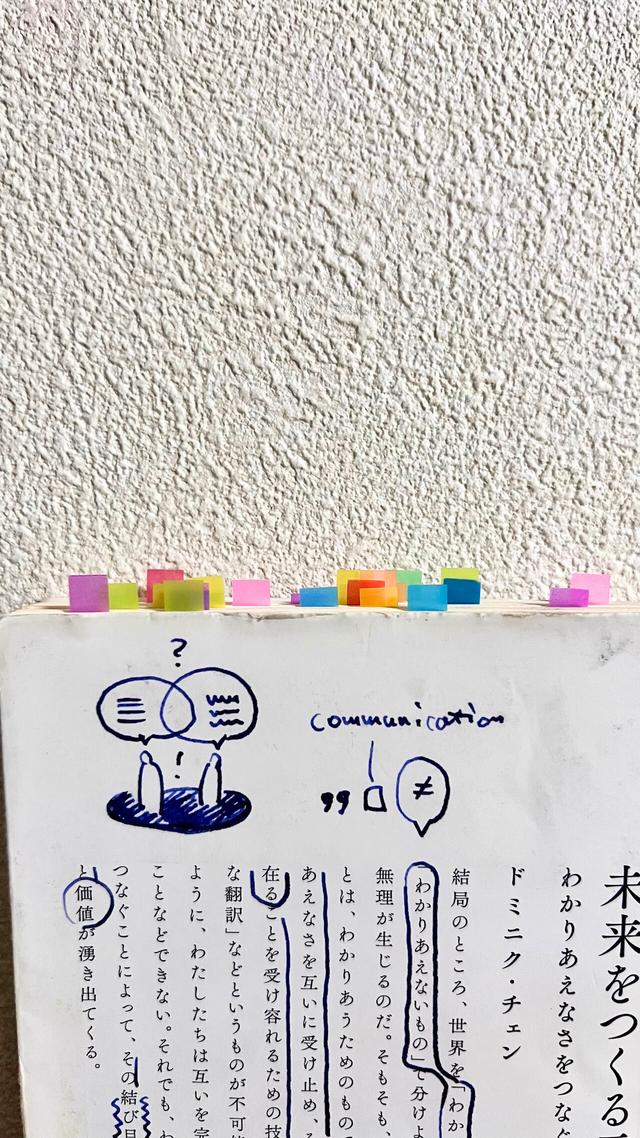 ?
!
communication
≠
未来をつくる
わかりあえなさをつな
ドミニク・チェン
結局のところ、世界を「わか
「わかりあえないもの」で分けよ
無理が生じるのだ。そもそも、
とは、わかりあうためのもので
あえなさを互いに受け止め、
在ることを受け容れるための技
な翻訳」などというものが不可能
ように、わたしたちは互いを完
ことなどできない。それでも、わ
つなぐことによって、その結び目
と価値が湧き出てくる。